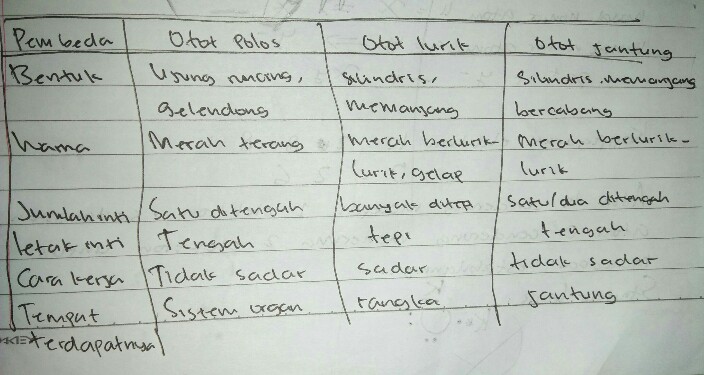 Pembeda Otot Polos Otot lurik Otot Jantung
Bentuk Ujung runcing, silindris, Silindris, memanjang
gelendong memanjang bercabang
Warna Merah terang merah berlurik- merah berlurik-
lurik, gelap lurik
Jumlah inti Satu ditengah banyak ditepi satu/dua ditengah
letak inti Tengah tepi tengah
Cara kerja Tidak sadar sadar tidak sadar
Tempat Sistem organ rangka jantung
terdapatnya